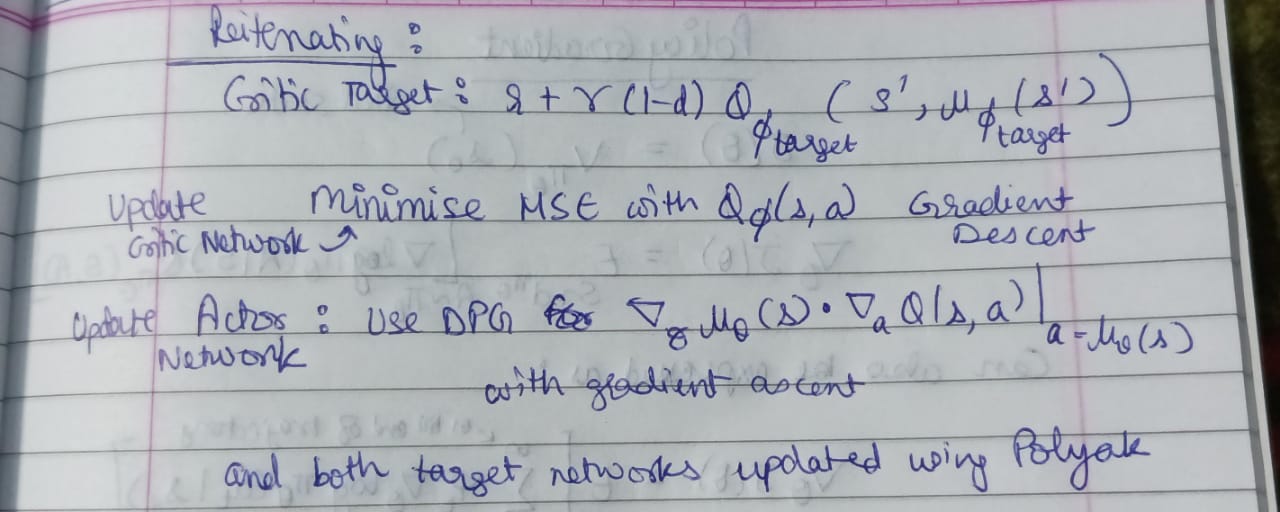 Reitenating :
Critic Target : r + γ (1-d) Q_ϕtarget (s', μ_ϕtarget (s'))
Update Critic Network ↗ Minimise MSE with Q_ϕ(s, a) Gradient Descent
Update Actor Network : Use DPG ∇_θ μ_θ (s) • ∇_a Q(s, a) |_a = μ_θ (s)
with gradient ascent
and both target networks updated using Polyak